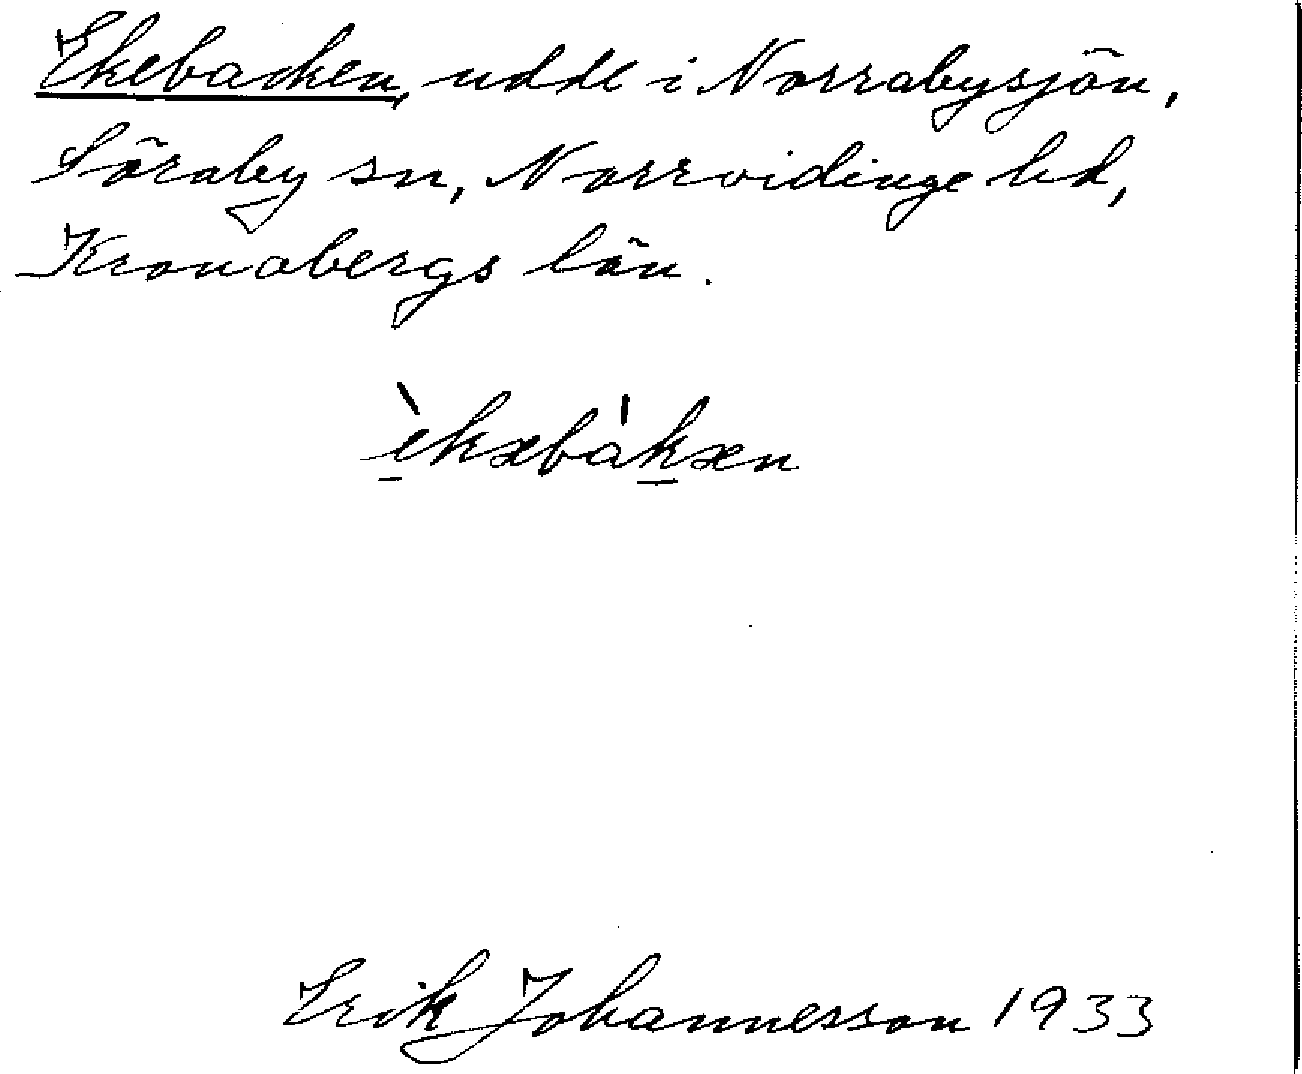 Ekebacken, udde i Norrabysjön,
Söraby sn, Norrvidinge hd,
Kronobergs län.
èkæbákæn
Erik Johannesson 1933